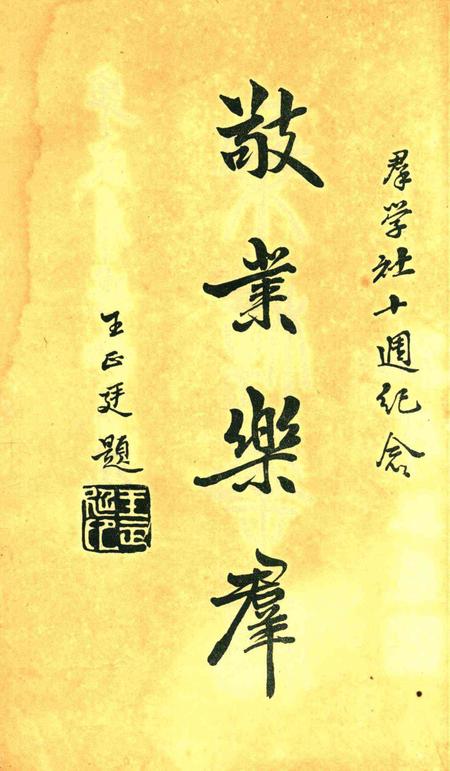 羣学社十週纪念
敬業樂羣
王正廷題
王正廷印